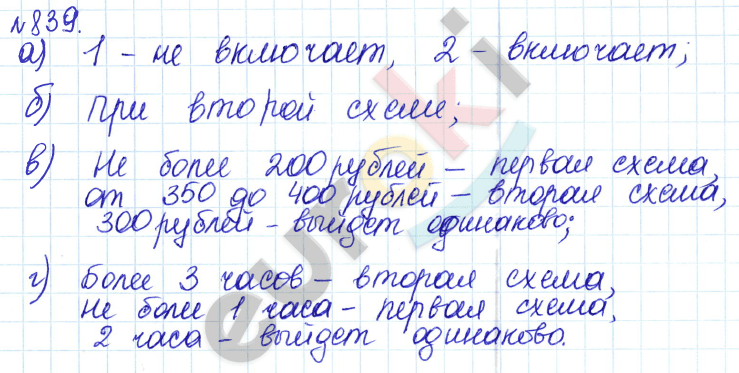 №839.
а) 1 – не включает, 2 – включает;
б) При второй схеме;
в) Не более 200 рублей – первая схема,
от 350 до 400 рублей – вторая схема,
300 рублей – выйдет одинаково;
г) Более 3 часов – вторая схема,
Не более 1 часа – первая схема,
2 часа – выйдет одинаково.
euroki